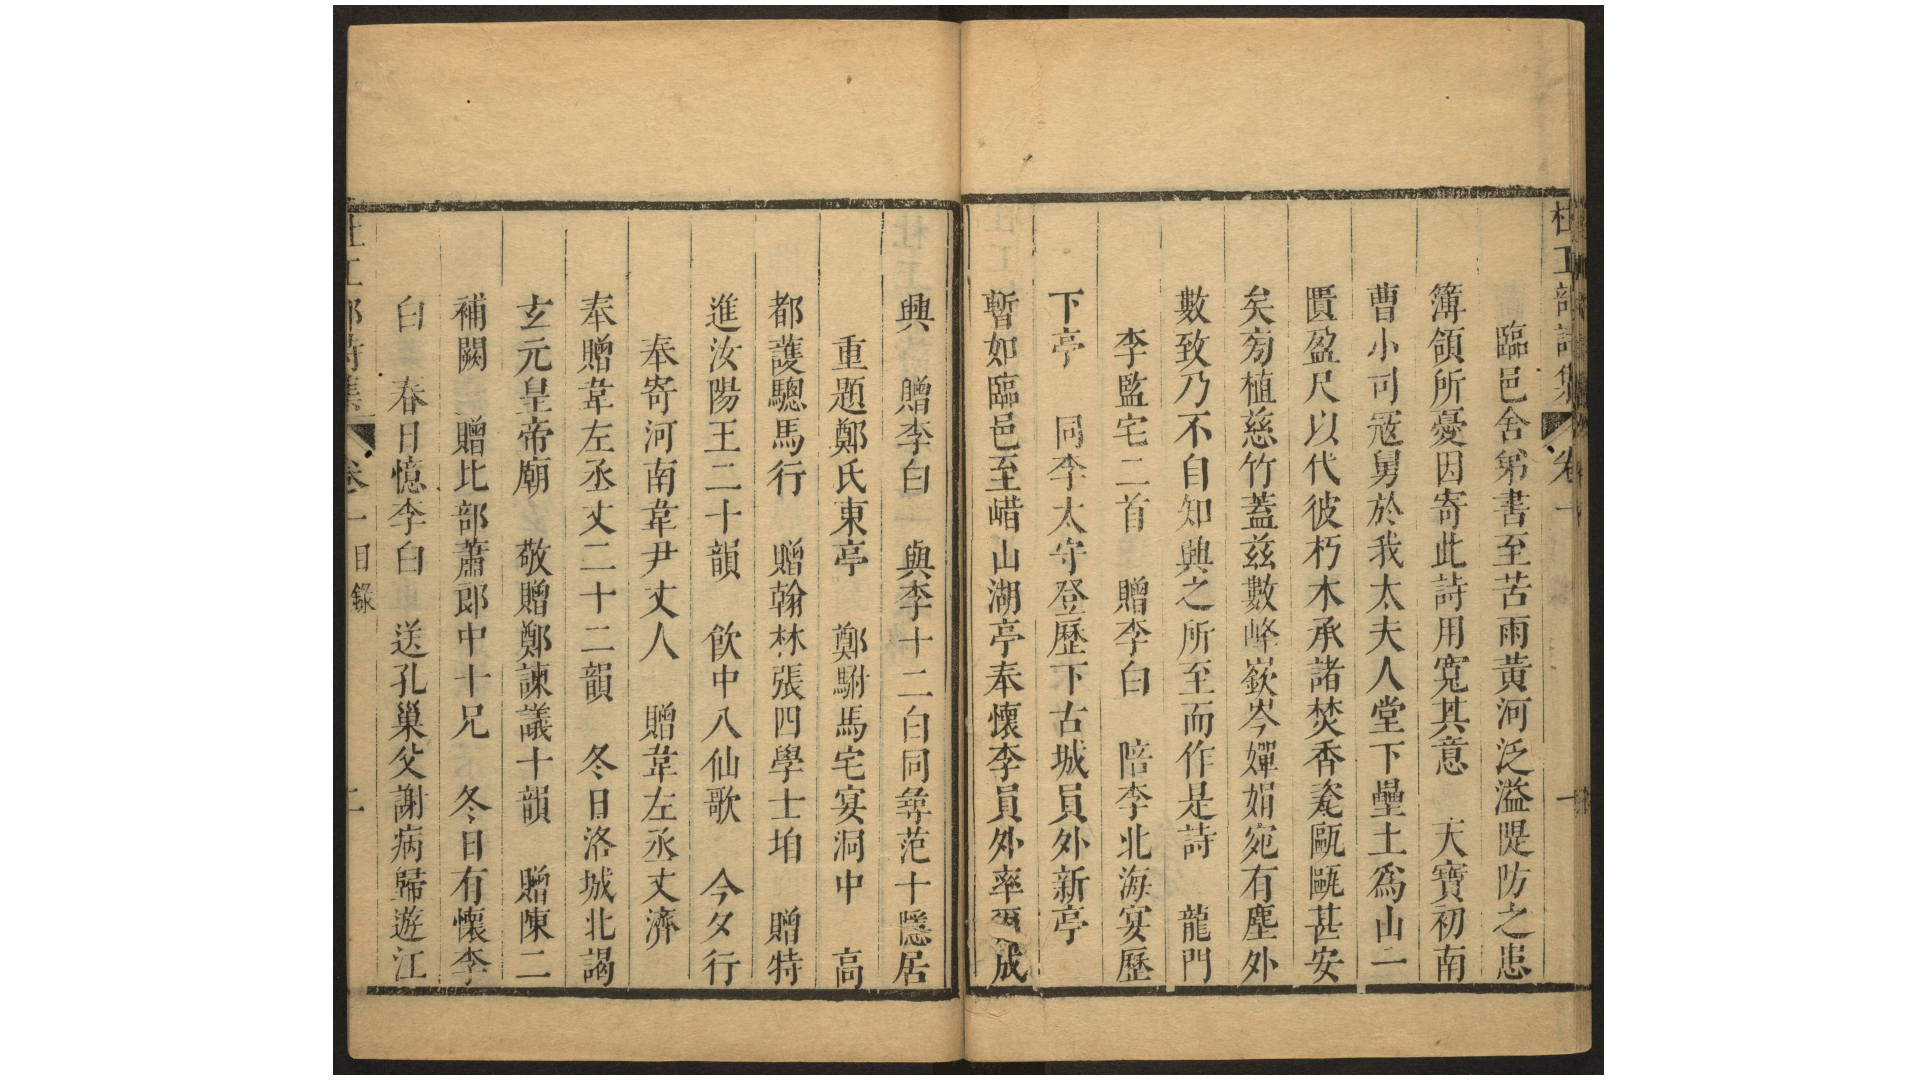 杜工部詩集 卷一 一
臨邑舍弟書至苦雨黃河泛溢隄防之患
簿領所憂因寄此詩用寬其意 天寶初南
曹小司寇舅於我太夫人堂下壘土爲山二
匱盈尺以代彼朽木承諸焚香瓷甌甌甚安
矣旁植慈竹蓋茲數峰嶔岑嬋娟宛有塵外
數致乃不自知興之所至而作是詩 龍門
李監宅二首 贈李白 陪李北海宴歷
下亭 同李太守登歷下古城員外新亭
暫如臨邑至㟙山湖亭奉懷李員外率爾成
興 贈李白 與李十二白同尋范十隱居
重題鄭氏東亭 鄭駙馬宅宴洞中 高
都護驄馬行 贈翰林張四學士垍 贈特
進汝陽王二十韻 飲中八仙歌 今夕行
奉寄河南韋尹丈人 贈韋左丞丈濟
奉贈韋左丞丈二十二韻 冬日洛城北謁
玄元皇帝廟 敬贈鄭諫議十韻 贈陳二
補闕 贈比部蕭郎中十兄 冬日有懷李
白 春日憶李白 送孔巢父謝病歸遊江
杜工部詩集 卷一目錄 二